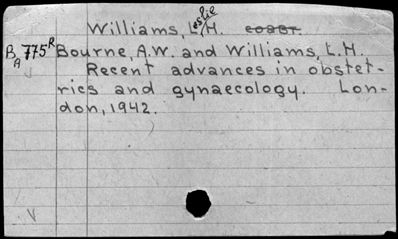 Williams, Leslie H. coabt.
BA775R Bourne, A.W. and Williams, L.H.
Recent advances in obstet-
rics and gynaecology. Lon-
don, 1942.